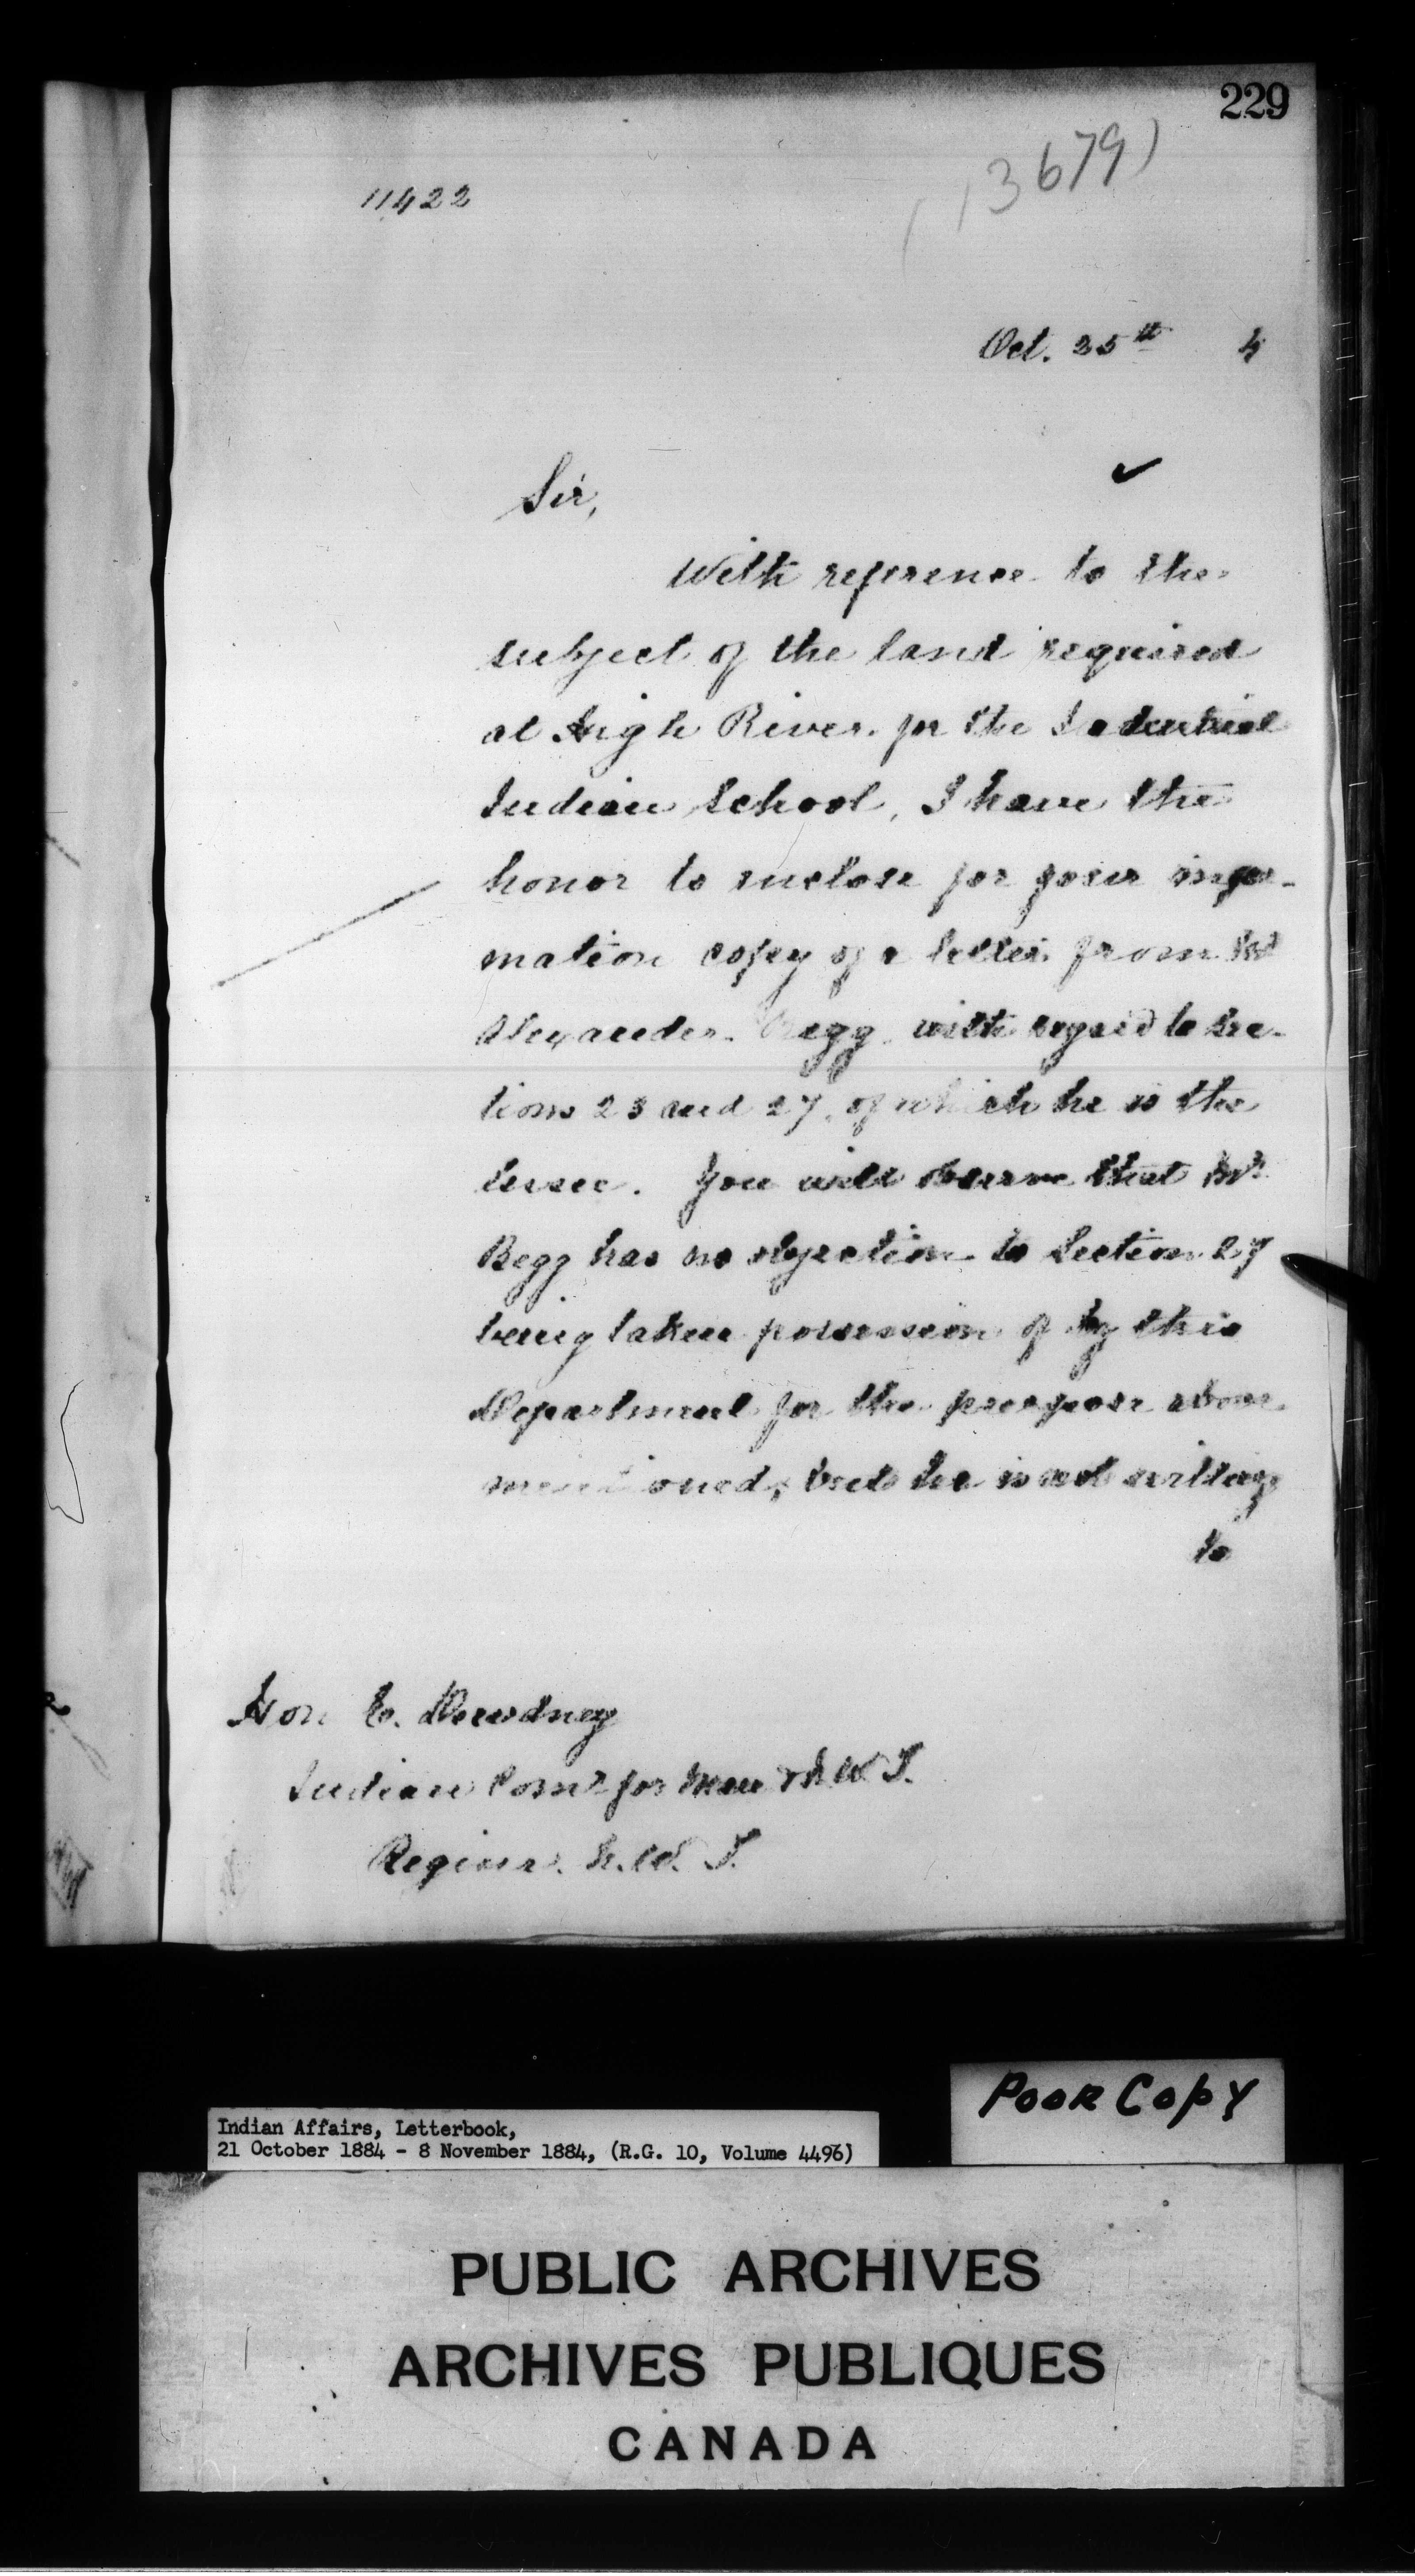 229
13679)
11422
Oct. 25th 4
Sir,
With reference to the
subject of the land required
at High River for the Industrial
Indian School, I have the
honor to enclose for your infor-
mation copy of a letter from Mr
Alexander Begg with regard to Sec-
tions 23 and 27, of which he is the
lessee. You will observe that Mr
Begg has no objection to Section 27
being taken possession of by this
Department for the purpose above
mentioned, but he is not willing
to
Hon E. Dewdney
Indian Comr for Man & N.W.T.
Regina. N.W.T.
Poor Copy
Indian Affairs, Letterbook,
21 October 1884 - 8 November 1884, (R.G. 10, Volume 4496)
PUBLIC ARCHIVES
ARCHIVES PUBLIQUES
CANADA